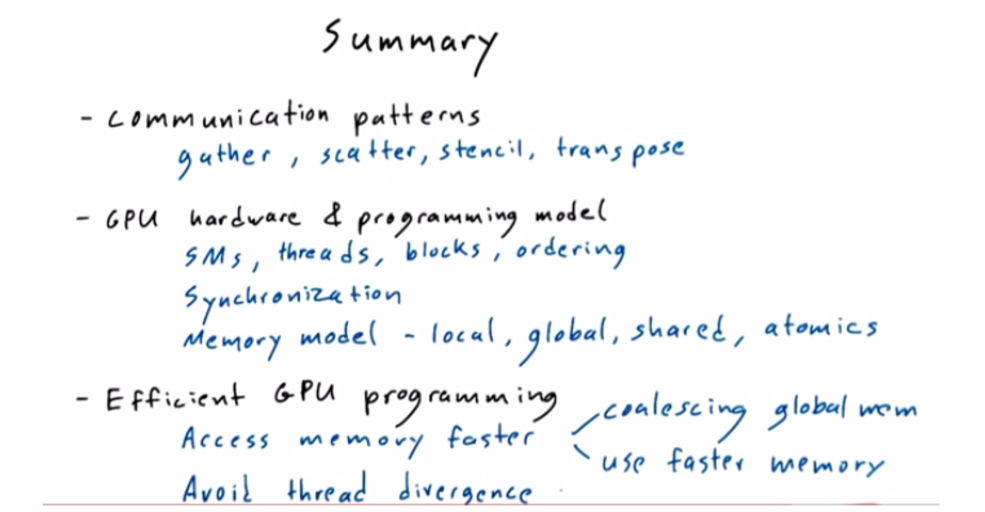 Summary
- Communication patterns
gather, scatter, stencil, transpose
- GPU hardware & programming model
SMs, threads, blocks, ordering
Synchronization
Memory model - local, global, shared, atomics
- Efficient GPU programming
Access memory faster
coalescing global mem
use faster memory
Avoid thread divergence